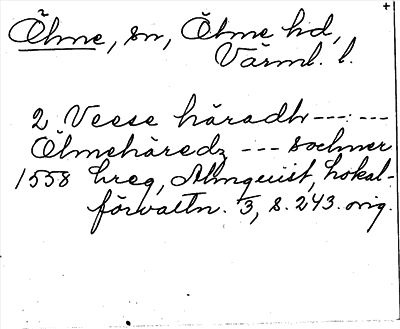 Ölme, sn, Ölme hd,
Värml. l.
2 Veese häradh --- ---
Ölmehäredz --- sochner
1558 hreg, Almquist, Lokal-
förvaltn. 3, s. 243. orig.